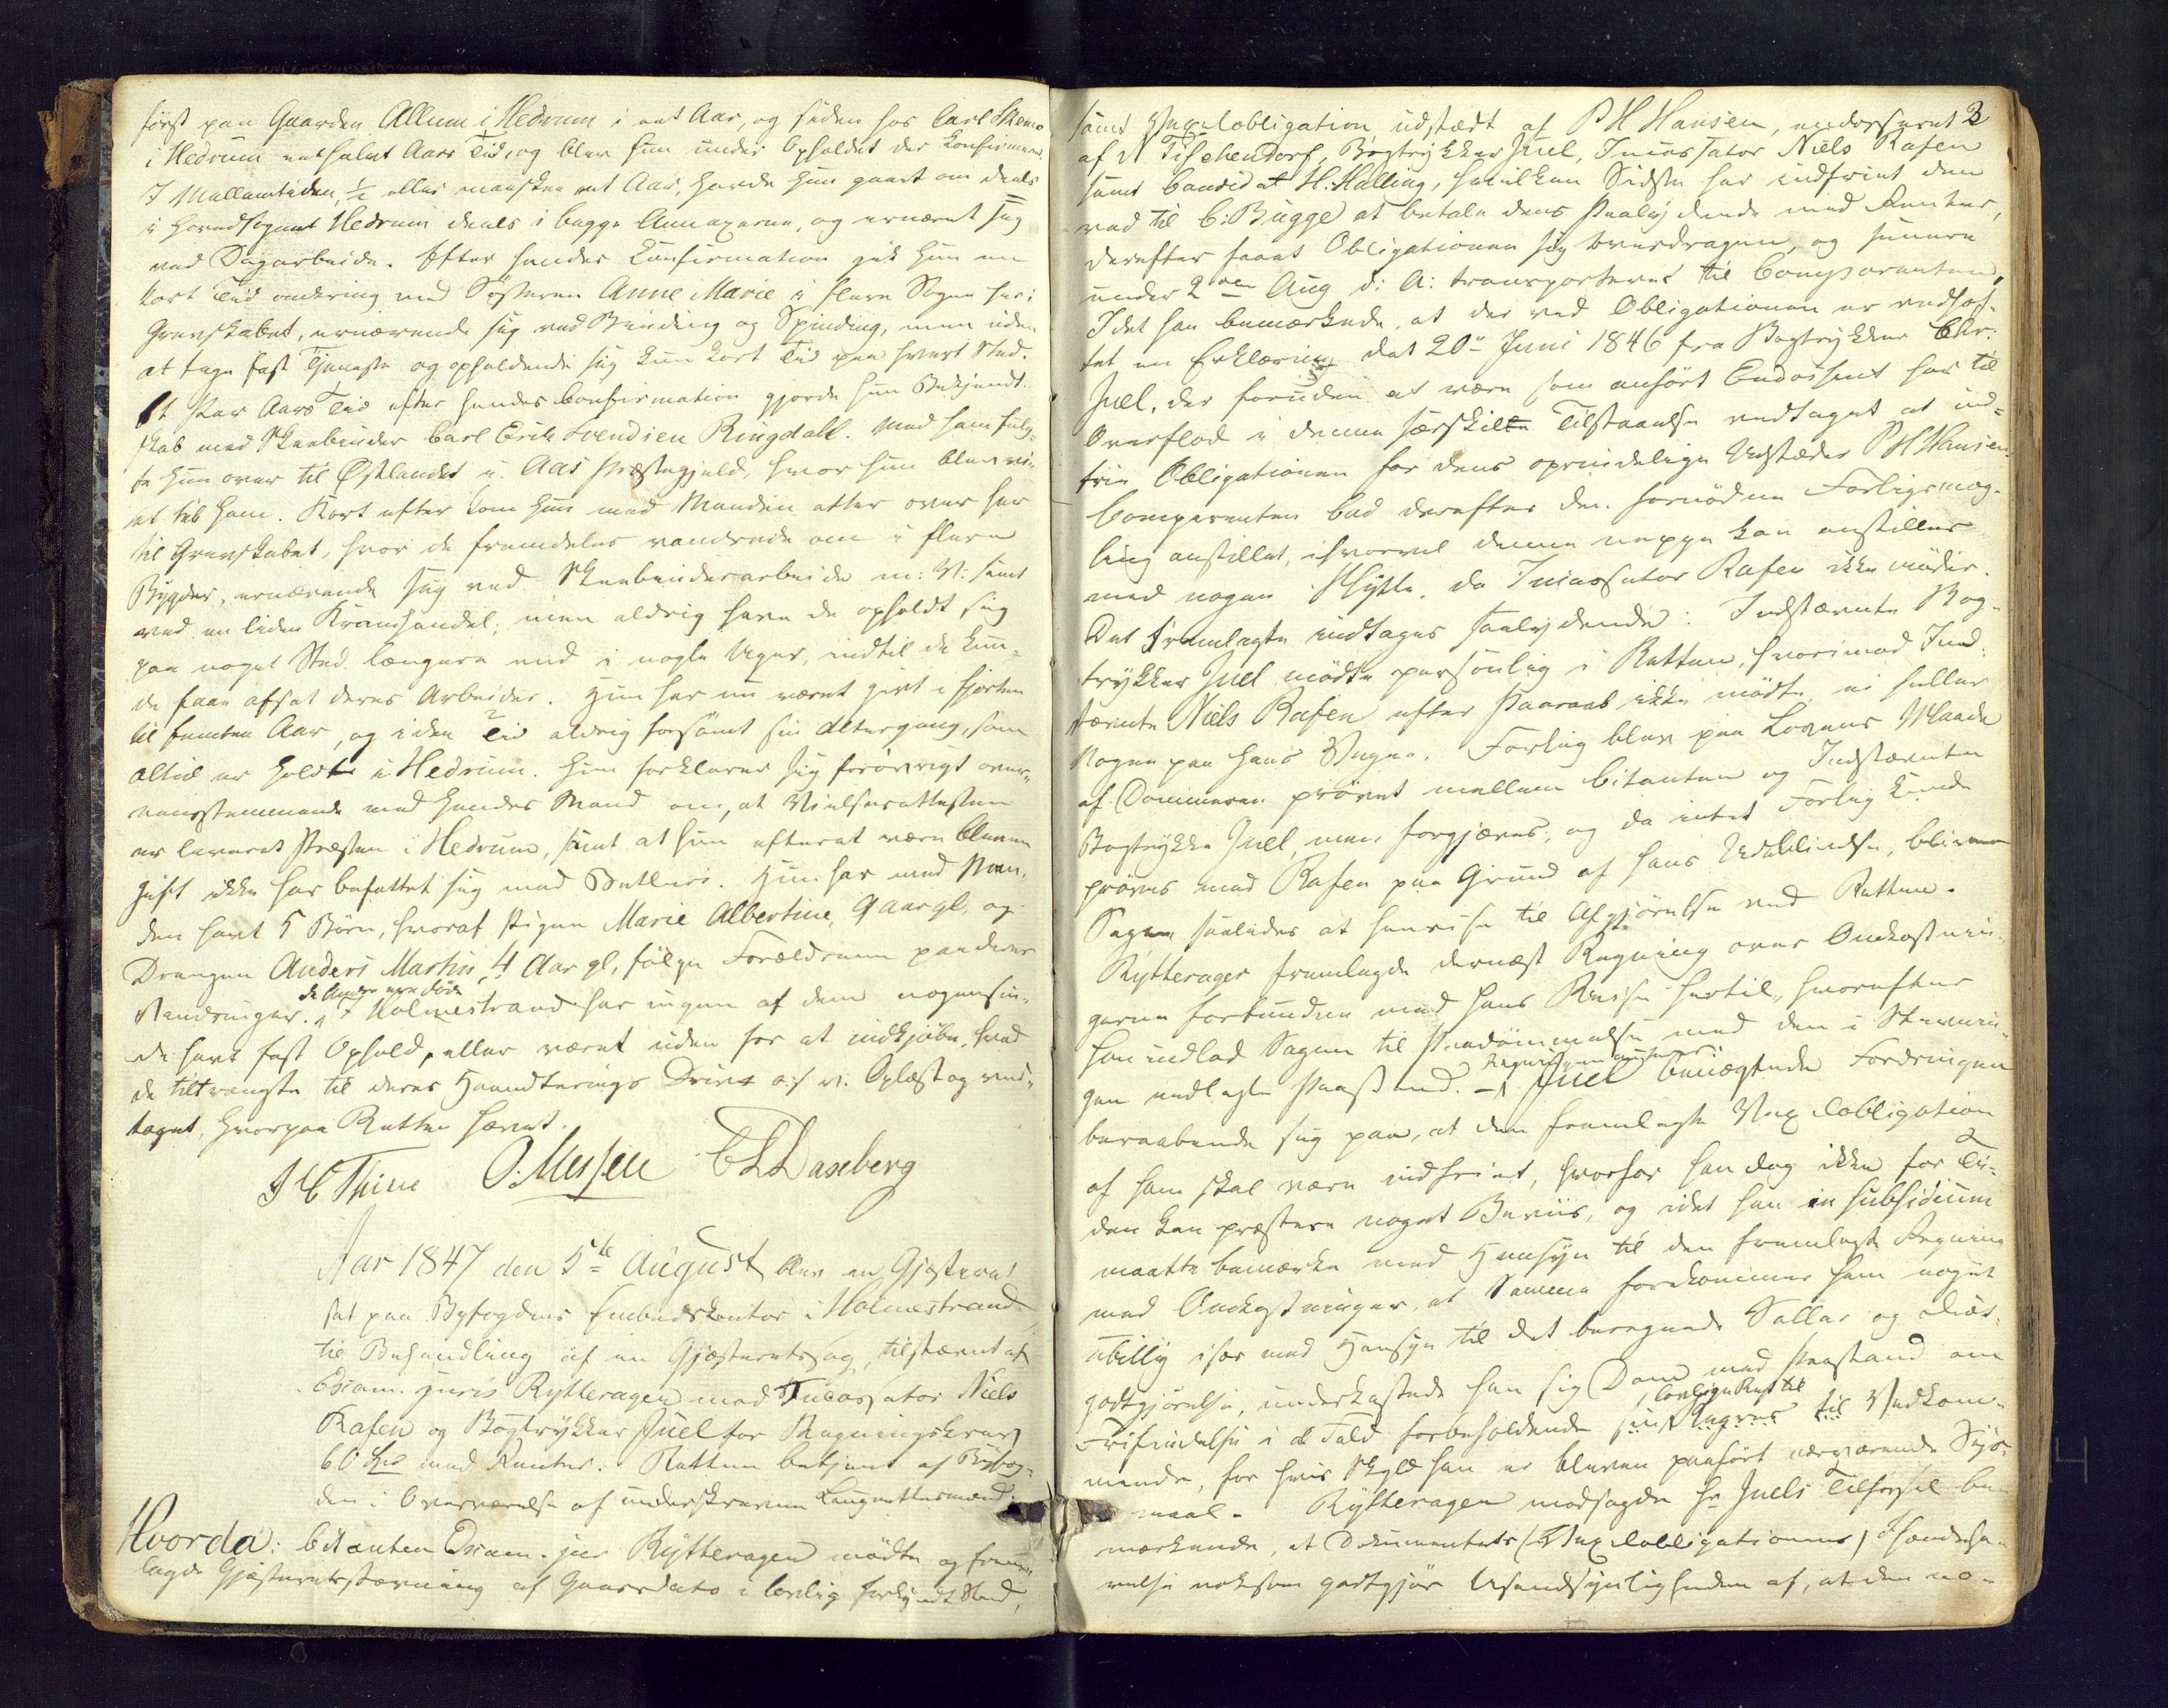 først paa Gaarden Allum i Hedrum i eet Aar, og siden hos Carl Skemo
i Hedrum eethalvt Aars Tid, og blev hun under Opholdet der Konfirmeret.
I Mellemtiden, ½ eller maaskee eet Aar, havde hun gaaet om deels
i Hovedsognet Hedrum deels i begge Annexerne, og ernæret sig
ved Dagarbeide. Efter hendes Confirmation gik hun en
kort Tid omkring med Søsteren Anne Marie i flere Sogne her i
Grevskabet, ernærende sig ved Binding og Spinding, men uden
at tage fast Tjeneste og opholdende sig kun kort Tid paa hvert Sted.
Et Par Aars Tid efter hendes Confirmation gjorde hun Bekjendt-
skab med Skeebinder Carl Erik Svendsen Ringdall. Med ham fulg-
te hun over til Østlandet i Aas Præstegjeld, hvor hun blev vi-
et til ham. Kort efter kom hun med Manden atter over her
til Grevskabet, hvor de fremdeles vandrede om i flere
Bygder, ernærende sig ved Skeebinderarbeide m: V: samt
ved en liden Kramhandel; men aldrig have de opholdt sig
paa noget Sted længere end i nogle Uger, indtil de kun-
de faae afsat deres Arbeider. Hun har nu været givt i fjorten
til femten Aar, og i den Tid aldrig forsømt sin Altergang, som
altid er holdt i Hedrum. Hun forklarer sig forøvrigt over-
eensstemmende med hendes Mand om, at Vielsesattesten
er leveret Præsten i Hedrum, samt at hun efterat være bleven
gift ikke har befattet sig med Betleri. Hun har med Man-
den havt 5 Børn, hvoraf Pigen Marie Albertine, 9 aar gl, og
Drengen Anders Martin, 4 Aar gl, følge Forældrene paa deres
de Andre ere døde
Vandringer. I Holmestrand har ingen af dem nogensin-
de havt fast Ophold, eller været uden for at indkjøbe, hvad
de tiltrængte til deres Haandterings Drivt o: s: v. Oplæst og ved-
taget, hvorpaa Retten hævet.
J C Thine O. Messen C L Daxeberg
Aar 1847 den 5te August blev en Gjæsteret
sat paa Byfogdens Embedskontor i Holmestrand
til Behandling af en Gjæsteretssag, tilstævnt af
Exam. juris Rytterager mod Incassator Niels
Rafen og Bogtrykker Juel for Regningskrav
60 Spd med Renter. Retten betjent af Byfog-
den i Overværelse af underskrevne Laugrettesmænd.
Hvorda: Citanten Exam. jur Rytterager mødte og frem-
lagde Gjæsteretsstævning af Gaarsdato i lovlig forkyndt Stand,
3
samt Vexelobligation udstædt af P H Hansen, endosseret
af N Tischendorf, Bogtrykker Juel, Incassator Niels Rafen
samt Candidat H. Halling, hvilken Sidste har indfriet den
ved til C: Bugge at betale dens Paalydende med Renter,
derefter faaet Obligationen sig overdragen, og senere
under 2den Aug d: A: transporteret til Comparenten,
Idet han bemærkede, at der ved Obligationen er vedhæf-
tet en Erklæring dat 20de Juni 1846 fra Bogtrykker Chr:
Juel, der foruden at være som anført Endossent har til
Overflod i denne særskilte Tilstaaelse vedtaget at ind-
frie Obligationen for dens oprindelige Udstæder P H Hansen.
Comparenten bad derefter den fornødne Forligsmæg-
ling anstillet, ihvorvel denne neppe kan anstilles
med nogen Nytte, da Incassator Rafen ikke møder.
Det fremlagte indtages saalydende: Indstævnte Bog-
trykker Juel mødte personlig i Retten, hvorimod Ind-
stævnte Niels Rafen efter Paaraab ikke mødte, ei heller
Nogen paa hans Vegne. Forlig blev paa Lovens Maade
af Dommeren prøvet mellem Citanten og Indstævnte
Bogtrykker Juel, men forgjæves; og da intet Forlig kunde
prøves med Rafen paa Grund af hans Udeblivelse, bliver
Sagen saaledes at henvise til Afgjørelse ved Retten.
Rytterager fremlagde dernæst Regning over Omkostnin-
gerne forbunden med hans Reise hertil, hvorefter
han indlod Sagen til Paadømmelse med den i Stevnin-
gen nedlagte Paastand. – Juel benægtede Fordringen
beraabende sig paa, at den fremlagte Vexelobligation
af ham skal være indfriet, hvorfor han dog ikke for Ti-
den kan præstere noget Beviis, og idet han in subsidium
maatte bemærke med Hensyn til den fremlagte Regning
med Omkostninger, at Samme forekommer ham noget
ubillig især med Hensyn til det beregnede Sallær og Diæt-
godtgjørelse, underkastede han sig Dom med Paastand om
lovlige Ret til
Frifindelse i et Fald forbeholdende sin Regres til Vedkom-
mende, for hvis Skyld han er bleven paaført nærværende Søgs-
maal. – Rytterager modsagde Hr Juels Tilførsel be-
mærkende, at Dokumentets (Vexelobligationens) Ihændeha-
velse noksom godtgjør Usandsynligheden af, at den no-